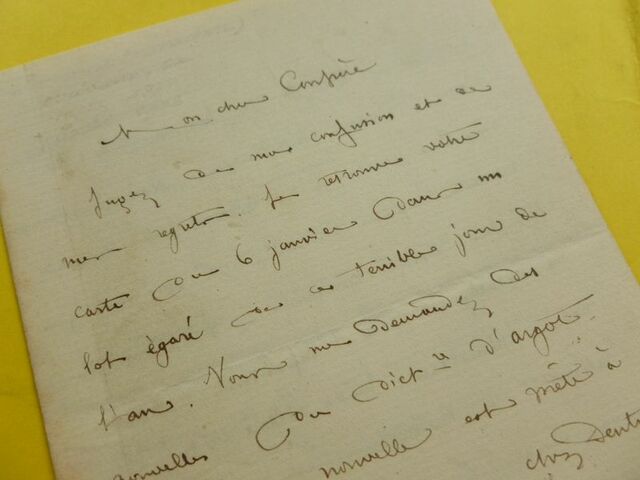 Mon cher Confrère
Jugez de ma confusion et de
mes regrets. Je retrouve votre
carte du 6 janvier dans un
lot égaré de ce terrible jour de
l'an. Vous me demandez des
nouvelles du dict.re d'argot.
nouvelle est prête à
chez Dentu